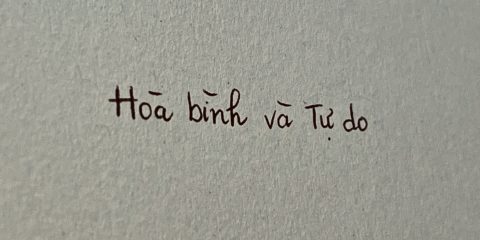 Hoà bình và Tự do